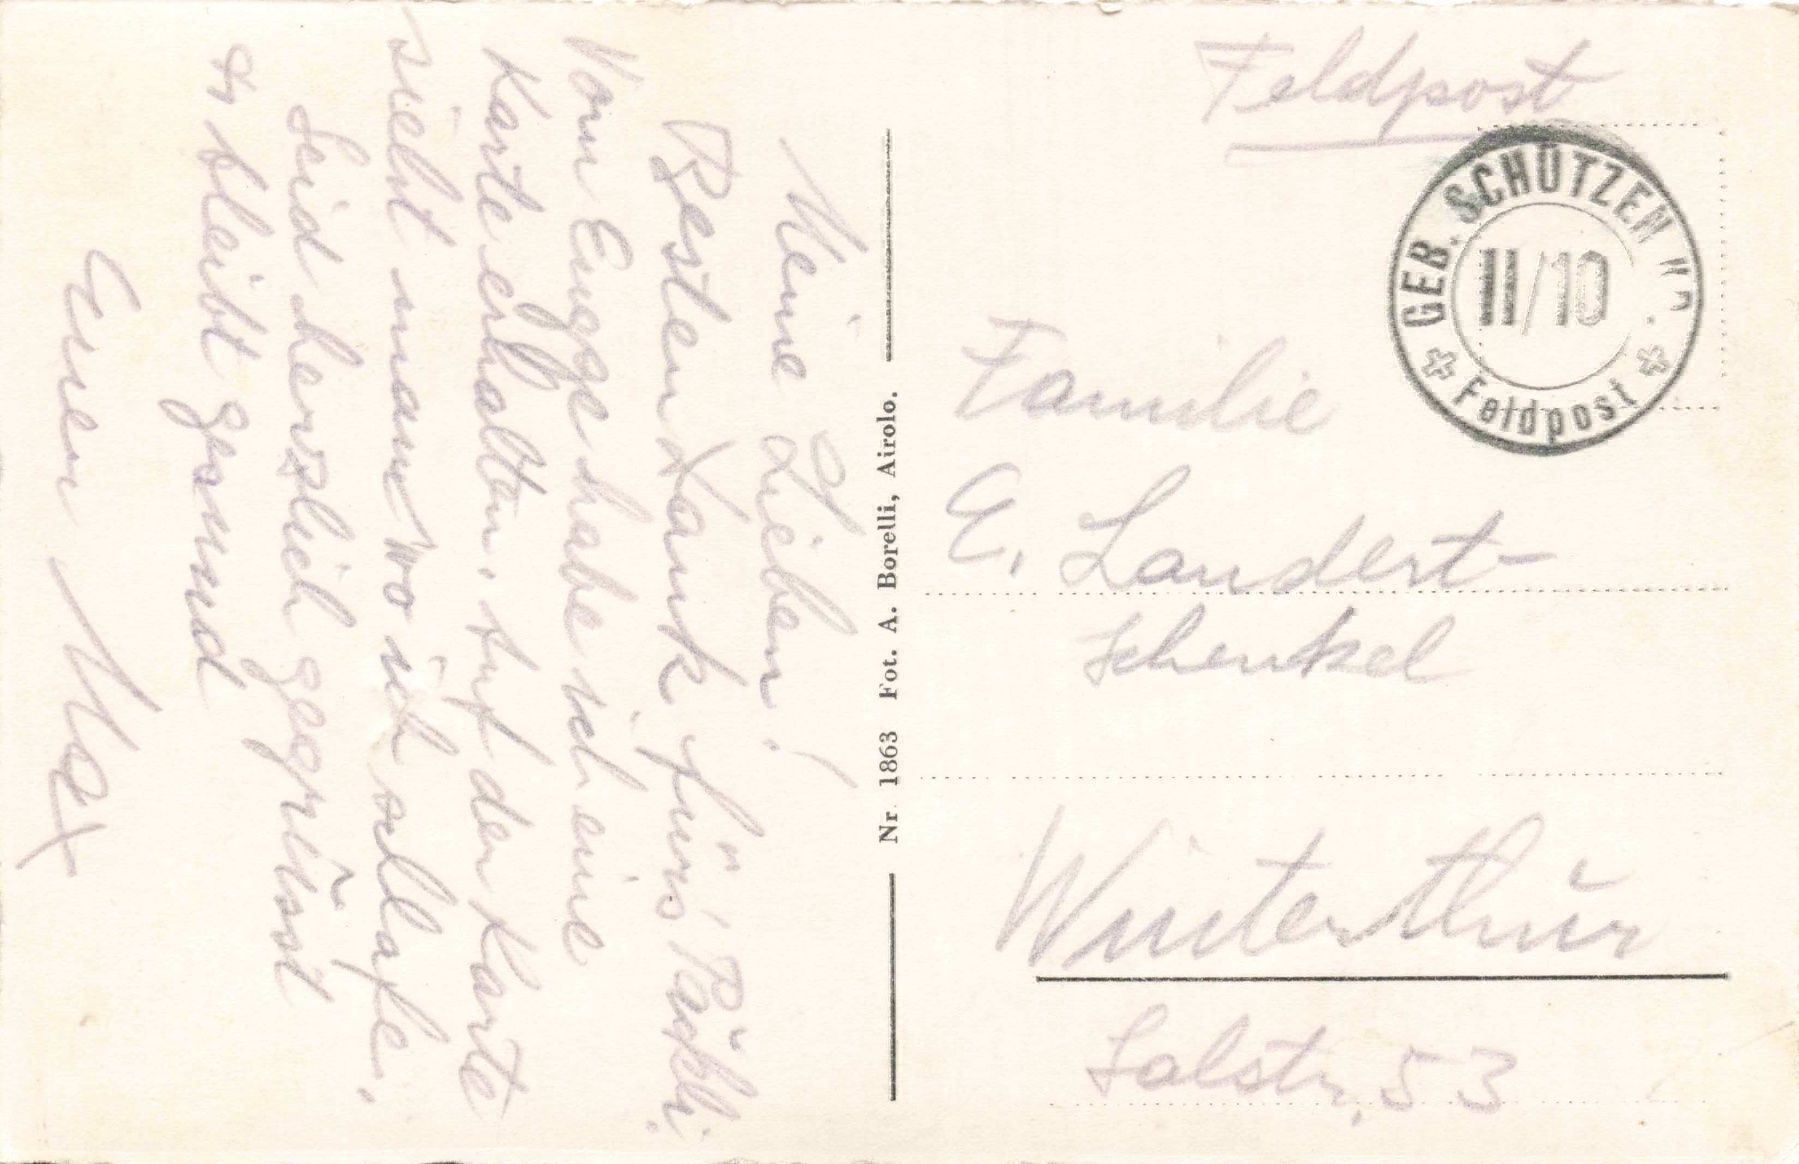 Meine Lieben!
Besten Dank fürs' Päckli.
Vom Eugge habe ich eine
Karte erhalten. Auf der Karte
sieht man wo ich schlafe.
Seid herzlich gegrüsst
& bleibt gesund
Euer Max
Nr. 1863 Fot. A. Borelli, Airolo.
Feldpost
GEB. SCHÜTZEN
II/10
Feldpost
Familie
E. Landert-
Schenkel
Winterthur
Salstr. 53